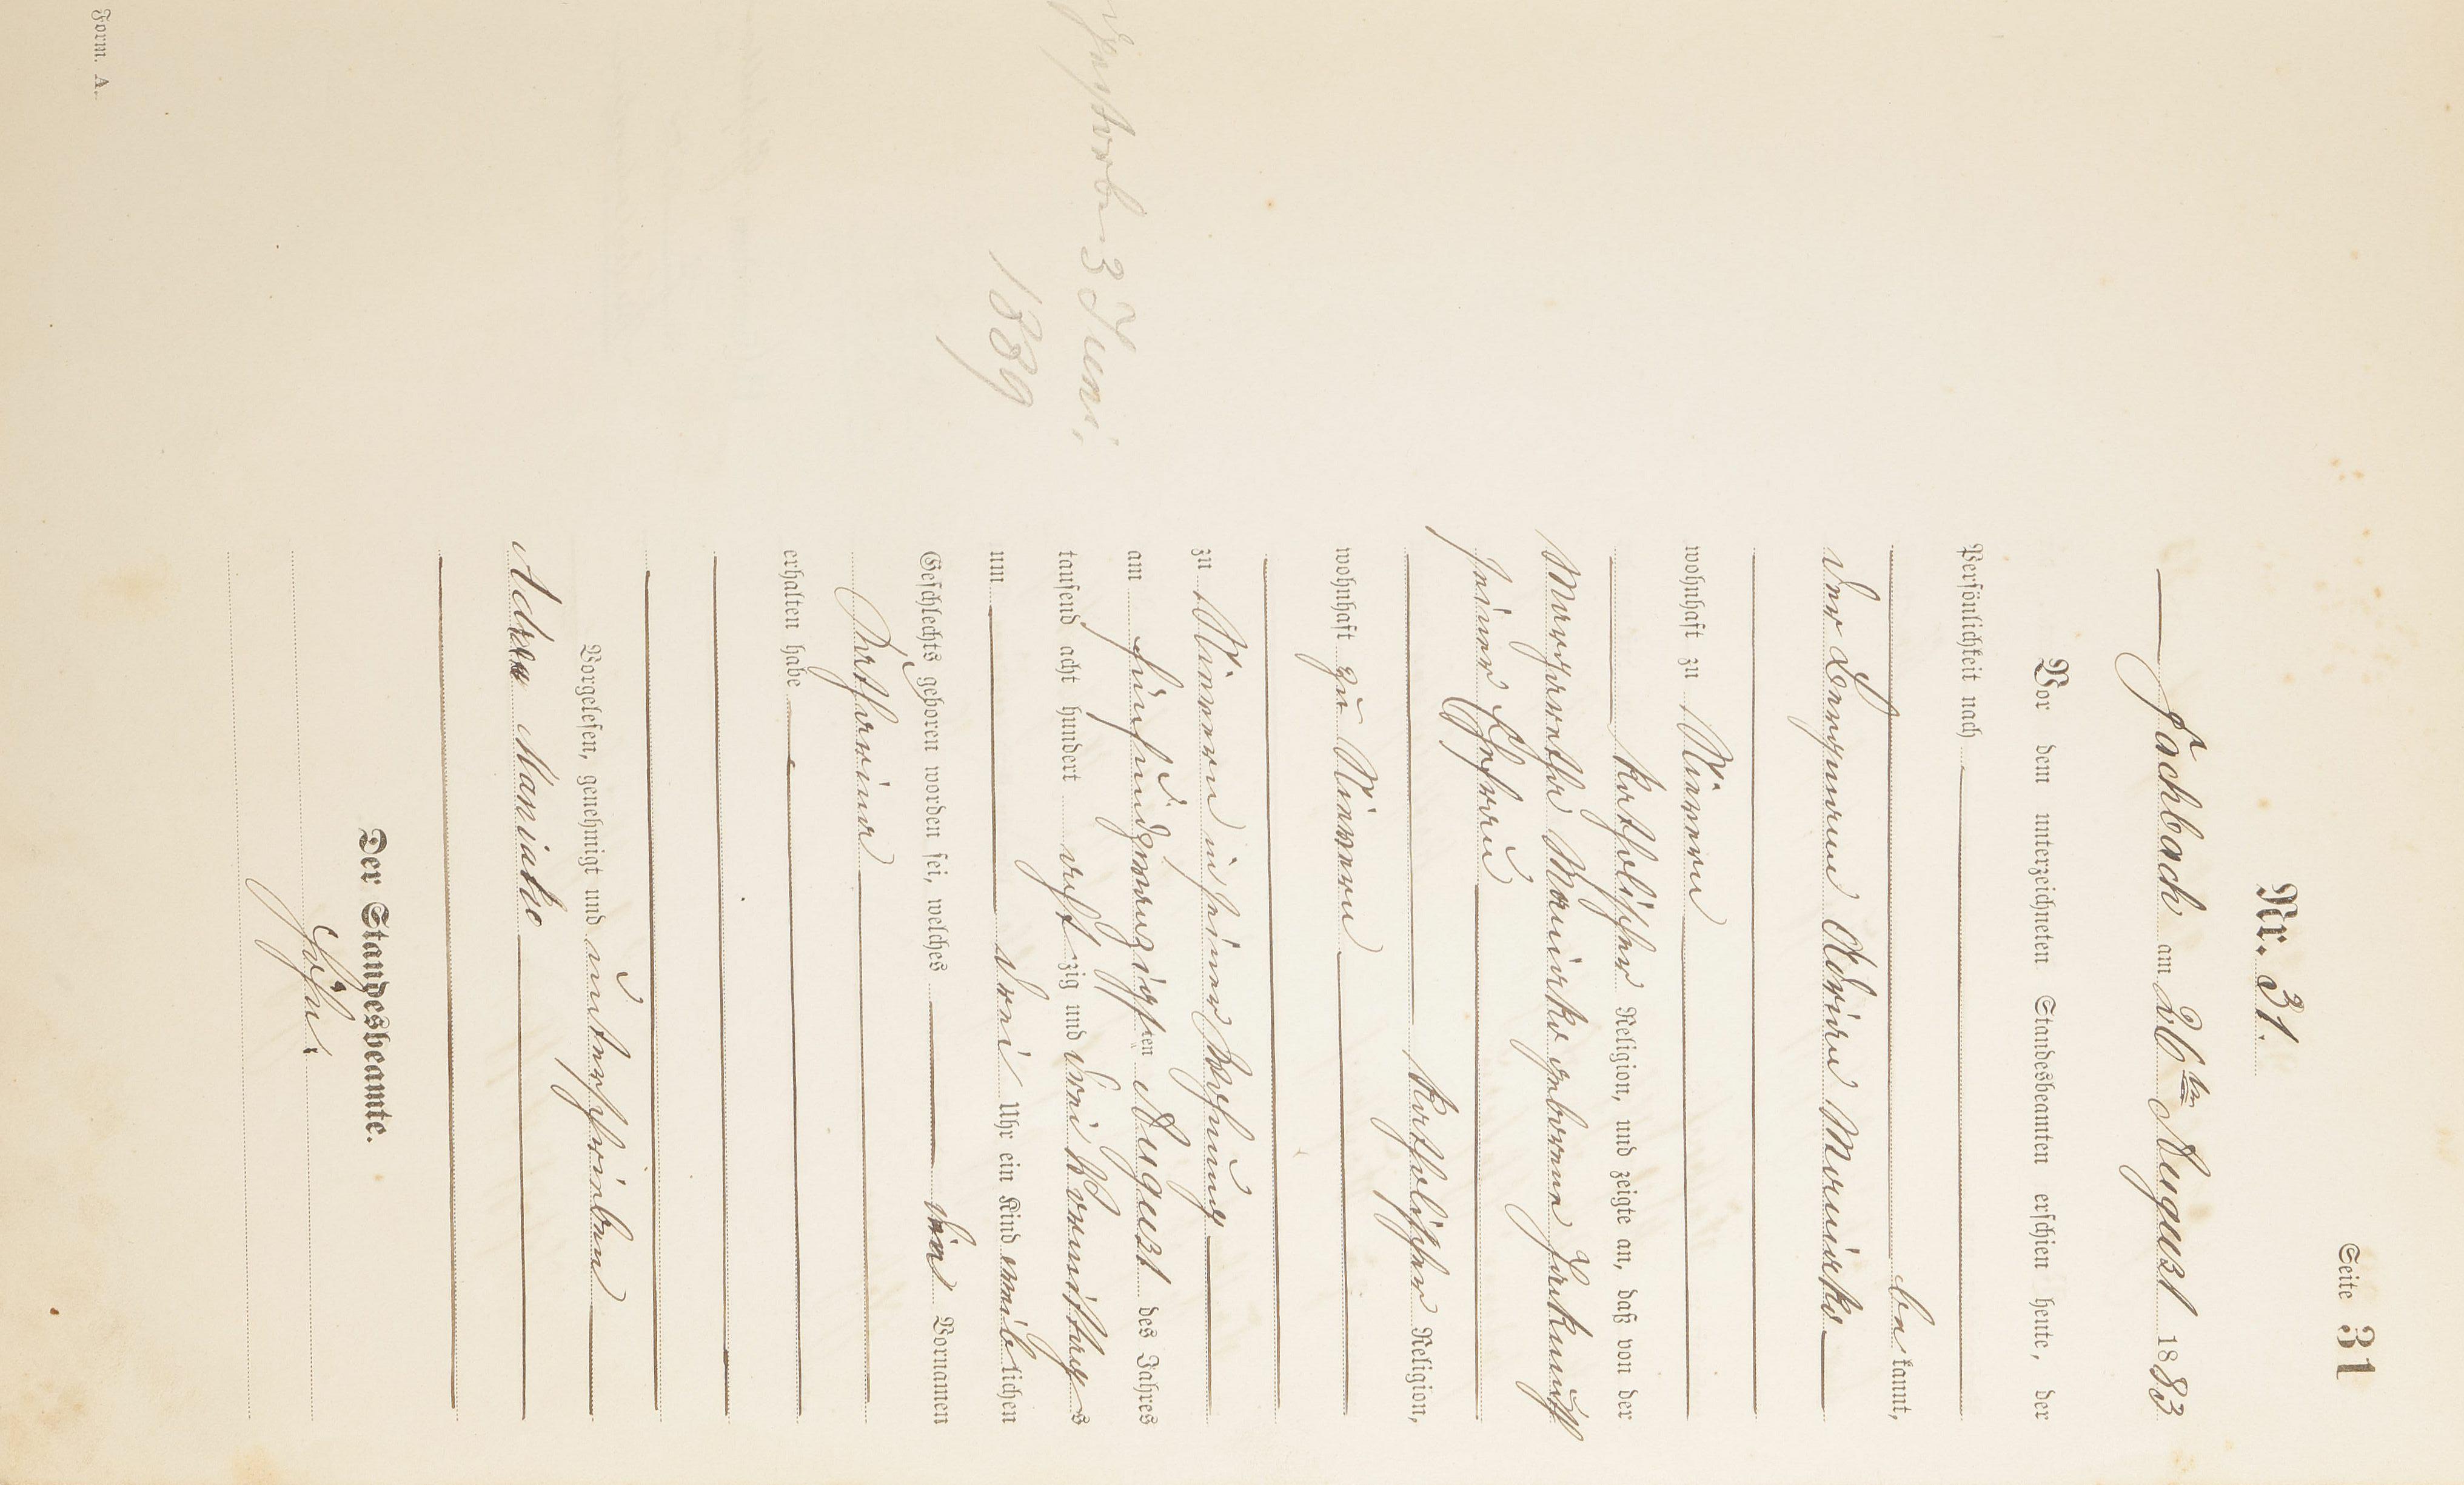 Seite 31
Nr. 31.
Fachbach am 26ten August 1883
Vor dem unterzeichneten Standesbeamten erschien heute, der
Persönlichkeit nach
bekannt,
der Bergmann Adrian Maniako
wohnhaft zu Nievern
katholischer Religion, und zeigte an, daß von der
Margaretha Maniako geborene
seiner Ehefrau
katholischer Religion,
wohnhaft zu Nievern
zu Nievern in seiner Wohnung
am fünfundzwanzigsten August des Jahres
tausend acht hundert achtzig und drei Vormittags
um drei Uhr ein Kind weiblichen
Geschlechts geboren worden sei, welches die Vornamen
Katharina
erhalten habe
Vorgelesen, genehmigt und unterschrieben
Adrian Maniako
Der Standesbeamte.
gestorben 3 Juni,
1889
Form. A.